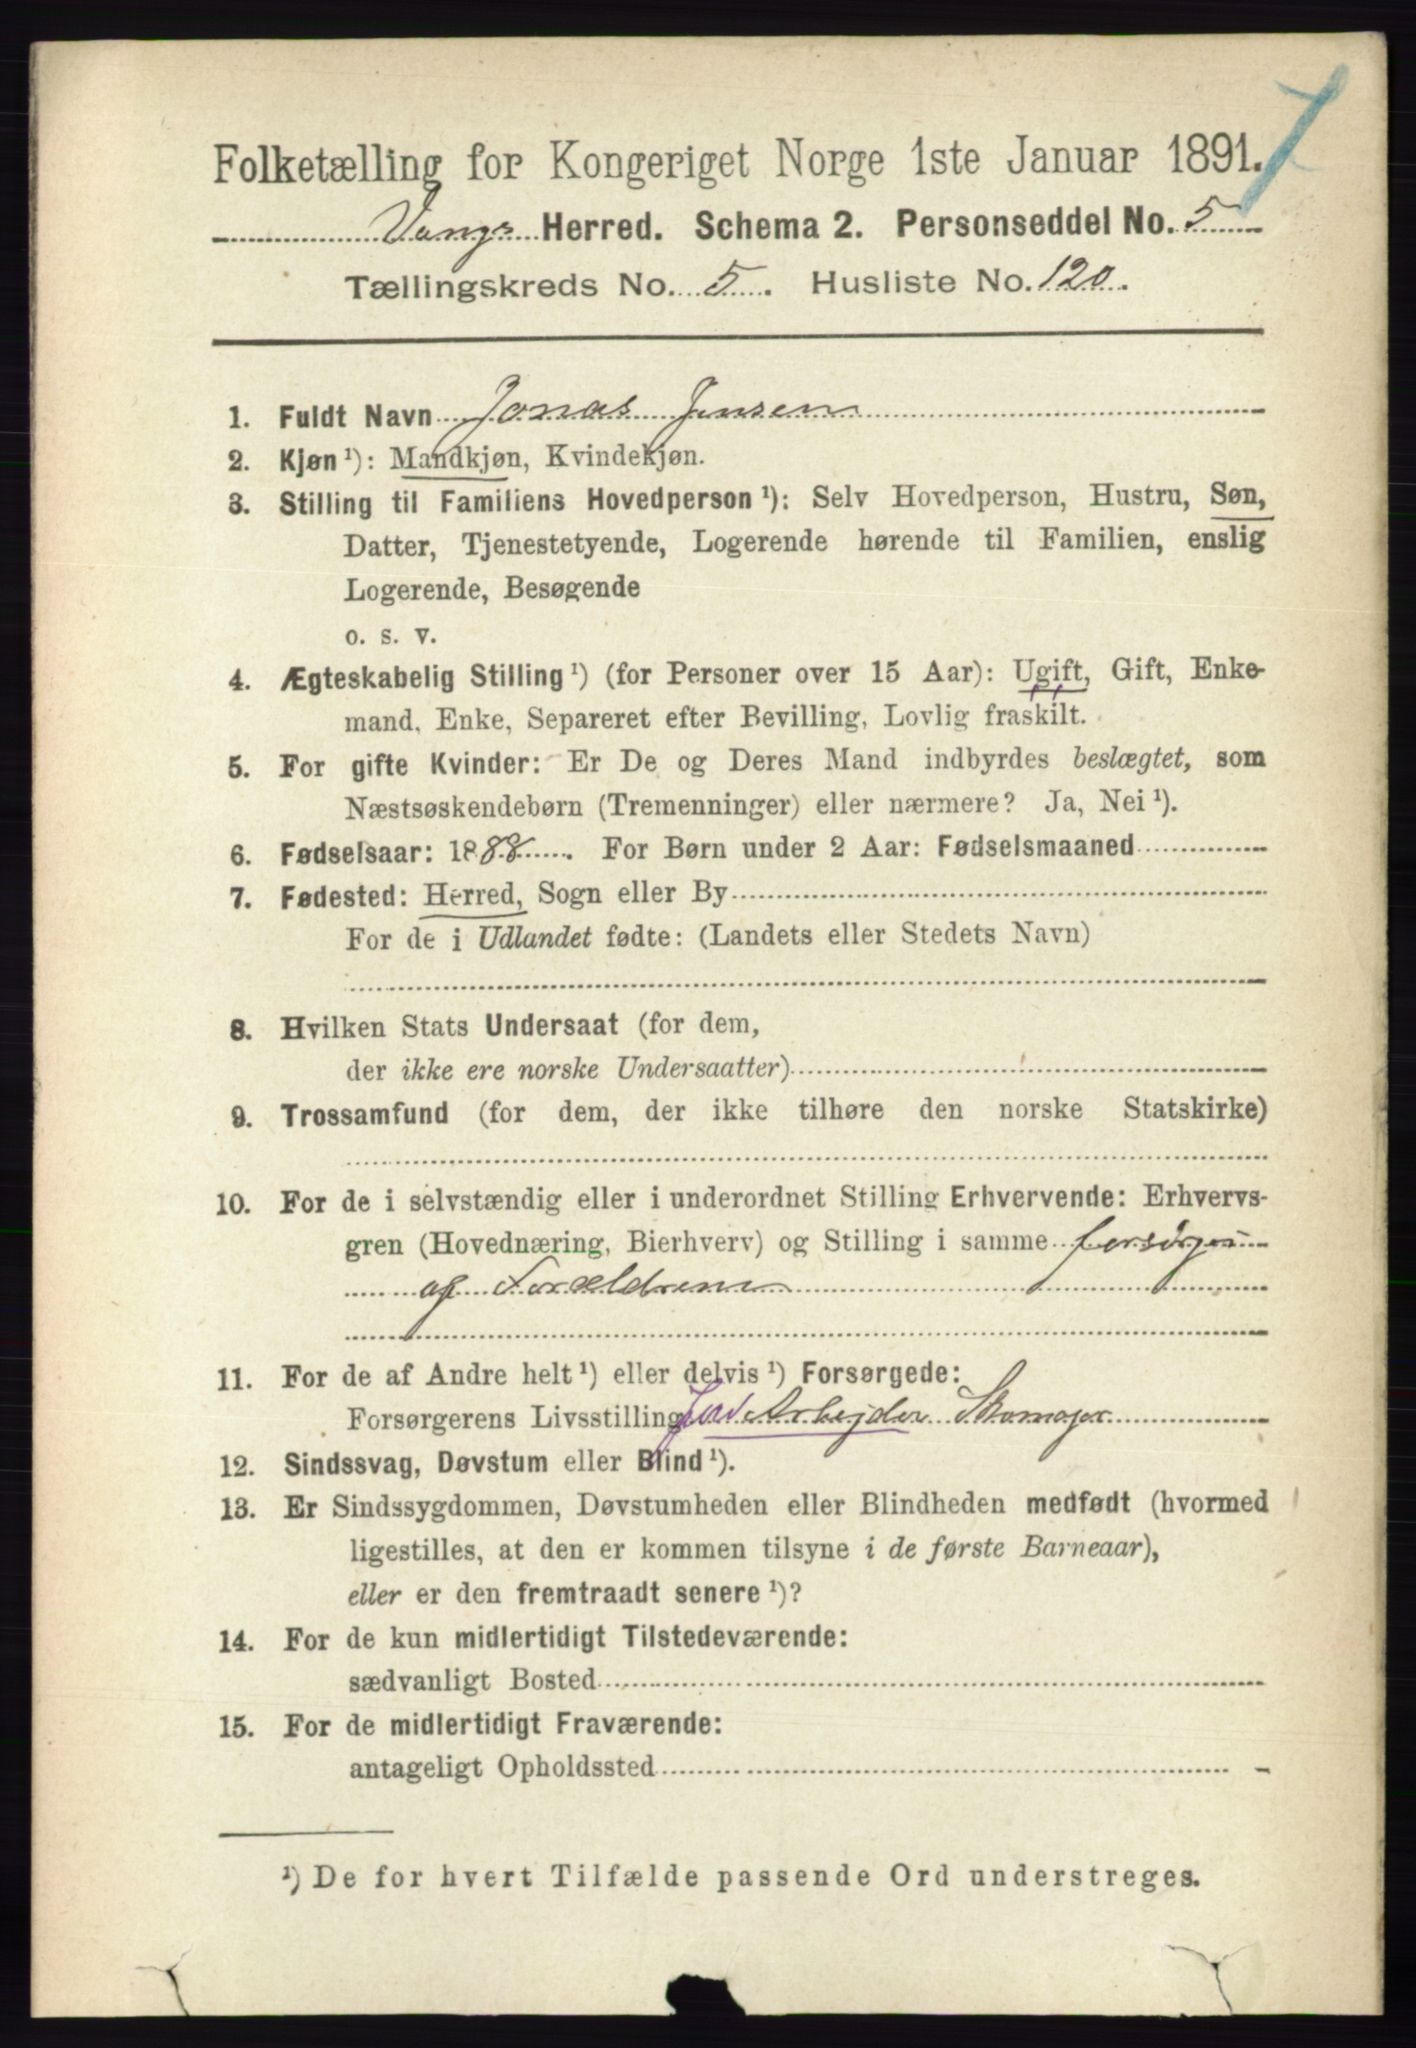 Folketælling for Kongeriget Norge 1ste Januar 1891.
Vangs Herred. Schema 2. Personseddel No. 5
Tællingskreds No. 5. Husliste No. 120.
1. Fuldt Navn Jonas Jensen
2. Kjøn ¹): Mandkjøn, Kvindekjøn.
3. Stilling til Familiens Hovedperson ¹): Selv Hovedperson, Hustru, Søn,
Datter, Tjenestetyende, Logerende hørende til Familien, enslig
Logerende, Besøgende
o. s. v.
4. Ægteskabelig Stilling ¹) (for Personer over 15 Aar): Ugift, Gift, Enke-
mand, Enke, Separeret efter Bevilling, Lovlig fraskilt.
5. For gifte Kvinder: Er De og Deres Mand indbyrdes beslægtet, som
Næstsøskendebørn (Tremenninger) eller nærmere? Ja, Nei ¹).
6. Fødselsaar: 1888. For Børn under 2 Aar: Fødselsmaaned
7. Fødested: Herred, Sogn eller By
For de i Udlandet fødte: (Landets eller Stedets Navn)
8. Hvilken Stats Undersaat (for dem,
der ikke ere norske Undersaatter)
9. Trossamfund (for dem, der ikke tilhøre den norske Statskirke)
10. For de i selvstændig eller i underordnet Stilling Erhvervende: Erhvervs-
gren (Hovednæring, Bierhverv) og Stilling i samme forsørges
af Forældrene
11. For de af Andre helt ¹) eller delvis ¹) Forsørgede:
Forsørgerens Livsstilling Jord Arbejder Skomager
12. Sindssvag, Døvstum eller Blind ¹).
13. Er Sindssygdommen, Døvstumheden eller Blindheden medfødt (hvormed
ligestilles, at den er kommen tilsyne i de første Barneaar),
eller er den fremtraadt senere ¹)?
14. For de kun midlertidigt Tilstedeværende:
sædvanligt Bosted
15. For de midlertidigt Fraværende:
antageligt Opholdssted
¹) De for hvert Tilfælde passende Ord understreges.